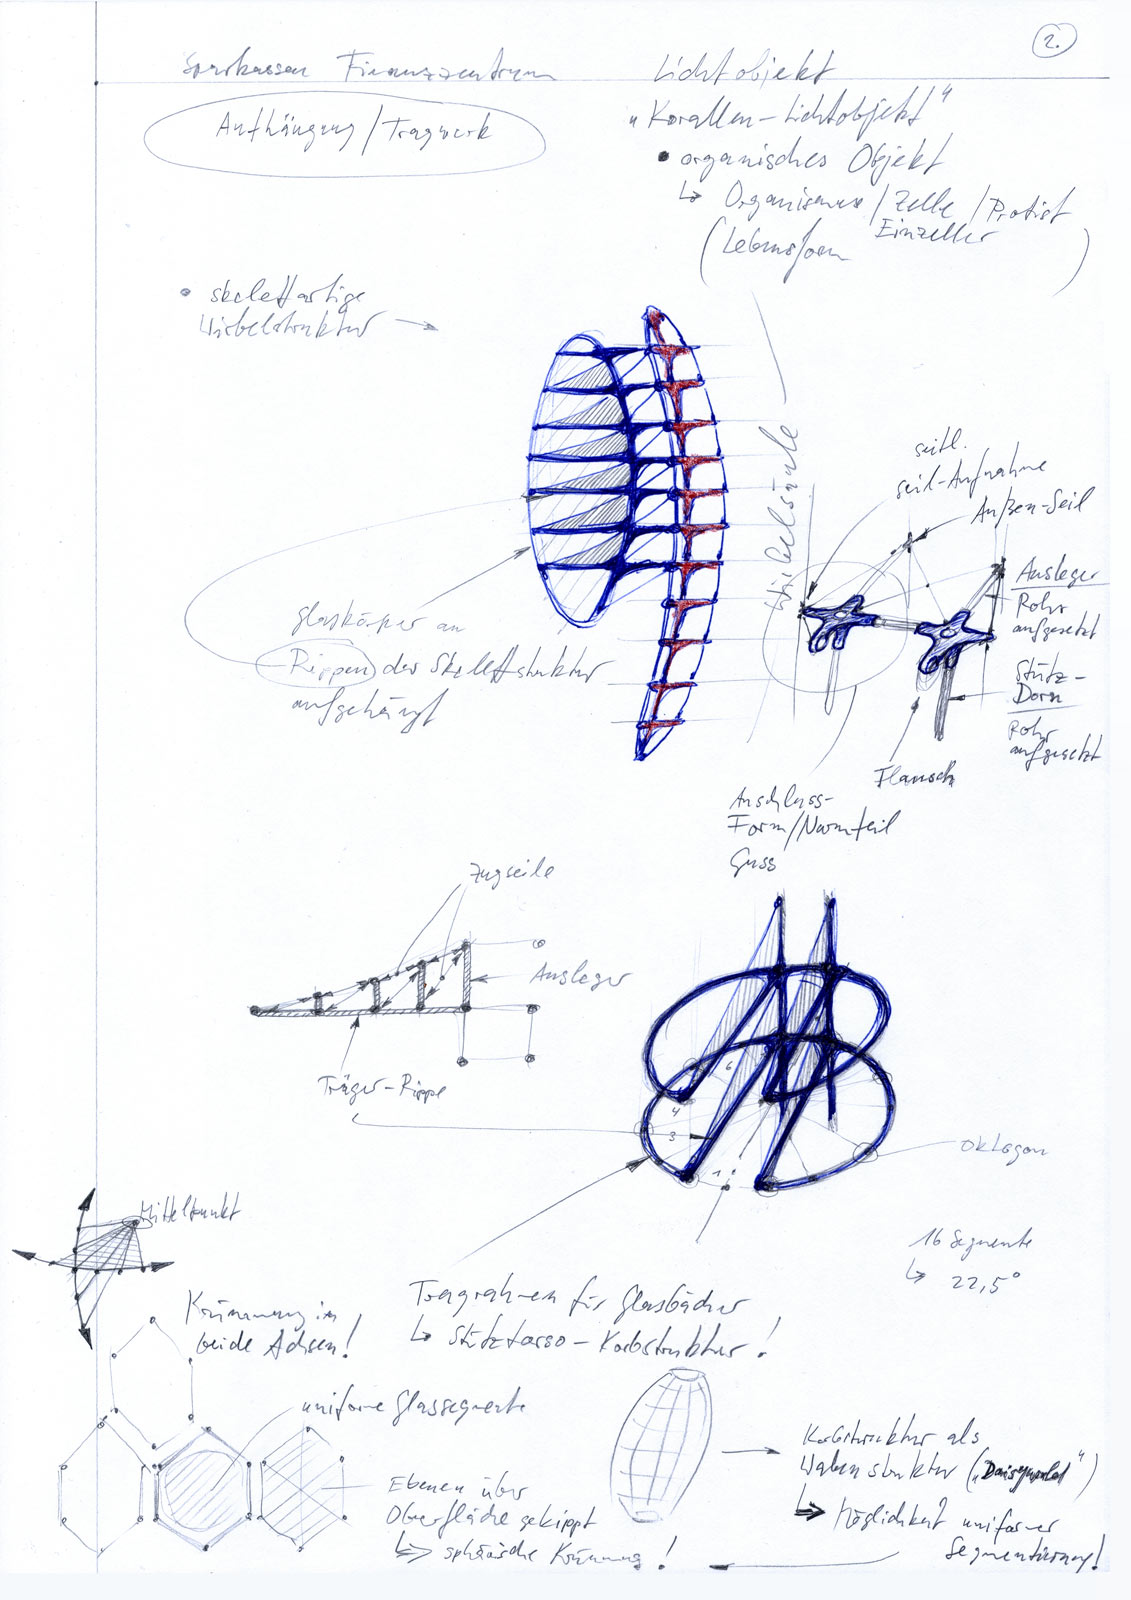 2.
Sparkassen Finanzzentrum
Lichtobjekt
Aufhängung/Tragwerk
„Korallen-Lichtobjekt"
• organisches Objekt
↳ Organismus/Zelle/Protist
Einzeller
(Lebensform)
• skelettartige
Wirbelstruktur →
Wirbelsäule
seitl.
seil-Aufnahme
Außen-Seil
Ausleger
Rohr
aufgesetzt
Stütz-
Dorn
Rohr
aufgesetzt
Flansch
glaskörper an
Rippen der Skelettstruktur
aufgehängt
Anschluss-
Form/Normteil
Guss
Zugseile
Ausleger
Träger-Rippe
6
4
3
1
Oktagon
16 Segmente
↳ 22,5°
Mittelpunkt
Krümmung in
beide Achsen!
Tragrahmen für Glasfächer
↳ Stütztorso-Korbstruktur!
uniforme Glassegmente
Ebenen über
Oberfläche gekippt
↳ sphärische Krümmung!
Korbstruktur als
Wabenstruktur („Daisyworld")
↳ Möglichkeit uniformer
Segmentierung!